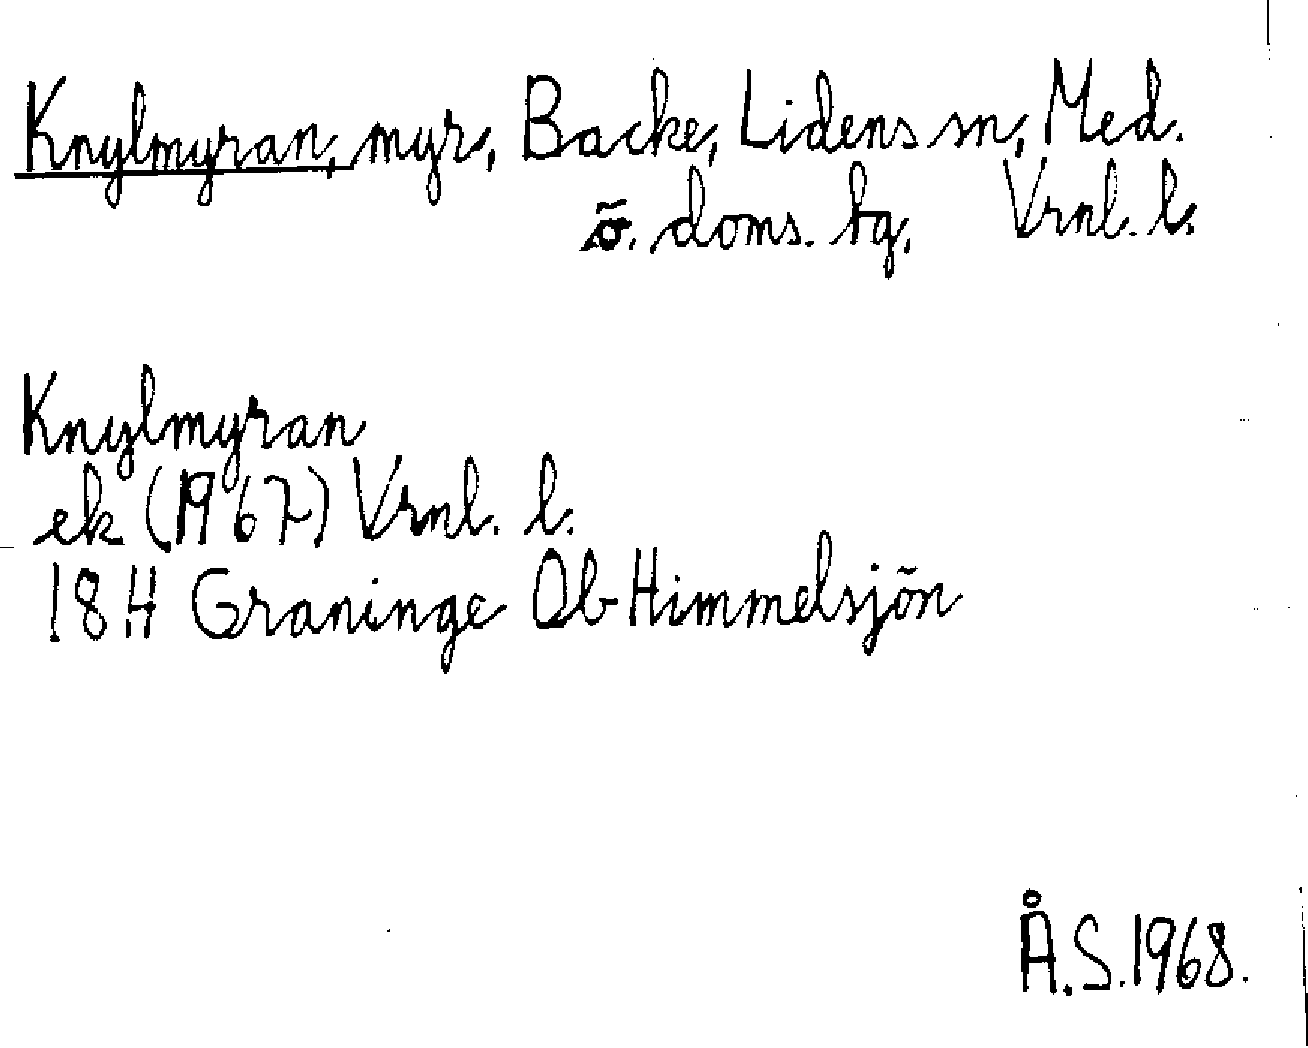 Knylmyran, myr, Backe, Lidens sn, Med.
ö. doms. tg. Vrnl. l.
Knylmyran
ek (1967) Vrnl. l.
18 H Graninge Ob Himmelsjön
Å.S. 1968.